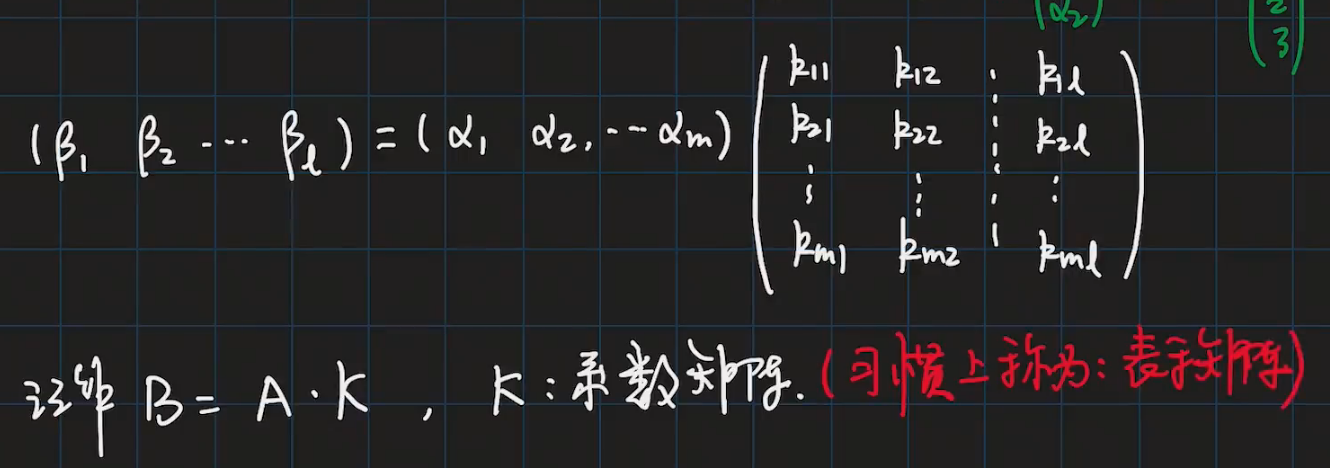 (α₂) (2 3)
(β₁ β₂ ⋯ βₗ) = (α₁ α₂, ⋯ αₘ) (k₁₁ k₁₂ ⋮ k₁ₗ
k₂₁ k₂₂ ⋮ k₂ₗ
⋮ ⋮ ⋮ ⋮
kₘ₁ kₘ₂ ⋮ kₘₗ)
B = A · K , K : 系数矩阵. (习惯上称为: 表示矩阵)